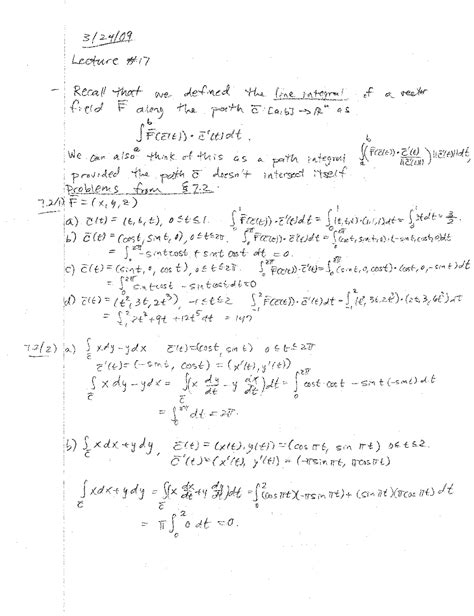 3/24/09
Lecture #17
- Recall that we defined the line integral of a vector
field F̄ along the path c̄:[a,b]→ℝⁿ as
∫ₐᵇ F̄(c̄(t))·c̄'(t)dt.
We can also think of this as a path integral ∫ₐᵇ(F̄(c̄(t))·c̄'(t)/‖c̄'(t)‖)‖c̄'(t)‖dt,
provided the path c̄ doesn't intersect itself
Problems from §7.2
7.2/1) F̄=(x,y,z)
a) c̄(t)=(t,t,t), 0≤t≤1. ∫₀¹F̄(c̄(t))·c̄'(t)dt=∫₀¹(t,t,t)·(1,1,1)dt=∫₀¹3tdt=3/2.
b) c̄(t)=(cost,sint,0), 0≤t≤2π. ∫₀²π F̄(c̄(t))·c̄'(t)dt=∫₀²π(cost,sint,0)·(-sint,cost,0)dt
=∫₀²π -sintcost+sintcost dt=0.
c) c̄(t)=(sint,0,cost), 0≤t≤2π. ∫₀²π F̄(c̄(t))·c̄'(t)dt=∫₀²π(sint,0,cost)·(cost,0,-sint)dt
=∫₀²π sintcost-sintcostdt=0
d) c̄(t)=(t²,3t,2t³), -1≤t≤2 ∫₋₁²F̄(c̄(t))·c̄'(t)dt=∫₋₁²(t²,3t,2t³)·(2t,3,6t²)dt
=∫₋₁² 2t³+9t+12t⁵dt=147
7.2/2) a) ∫ xdy-ydx c̄(t)=(cost,sint) 0≤t≤2π
c̄'(t)=(-sint,cost)=(x'(t),y'(t))
∫ xdy-ydx=∫(x dy/dt -y dx/dt)dt=∫₀²π cost cost-sint(-sint)dt
=∫₀²π dt=2π.
b) ∫ xdx+ydy, c̄(t)=(x(t),y(t))=(cos πt, sin πt) 0≤t≤2.
c̄'(t)=(x'(t),y'(t))=(-πsinπt,πcosπt)
∫ xdx+ydy=∫(x dx/dt +y dy/dt)dt=∫₀²(cosπt)(-πsinπt)+(sinπt)(πcosπt)dt
=π∫₀² 0 dt=0.